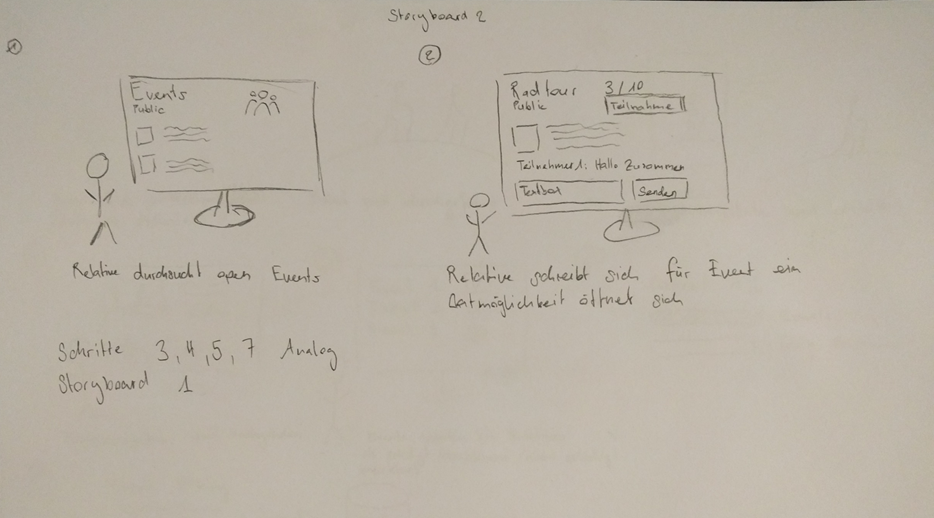 Storyboard 2
1
Events
Public
Relative durchsucht open Events
2
Radtour 3/10
Public Teilnahme
Teilnehmer 1: Hallo Zusammen
Textbox Senden
Relative schreibt sich für Event ein
Chatmöglichkeit öffnet sich
Schritte 3, 4, 5, 7 Analog
Storyboard 1